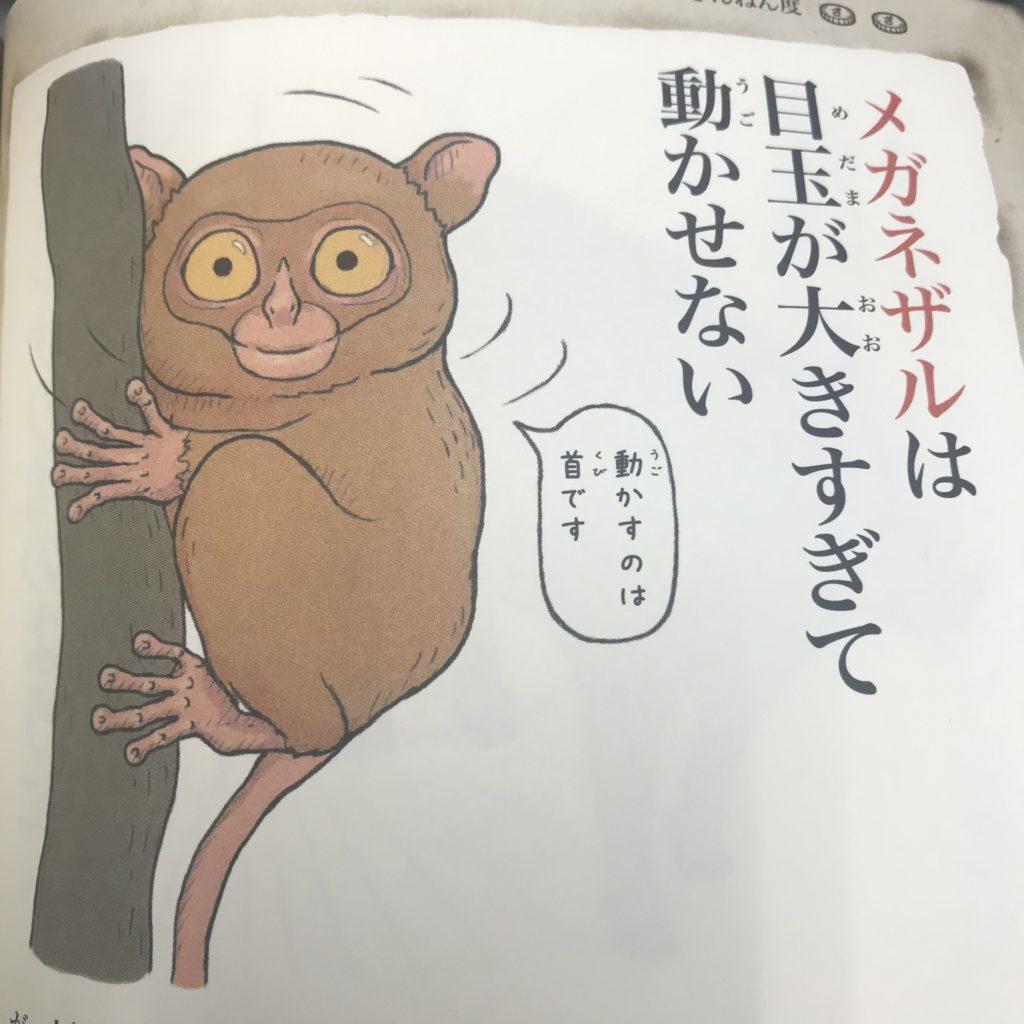 ねん度
メガネザルは
目玉が大きすぎて
動かせない
動かすのは
首です